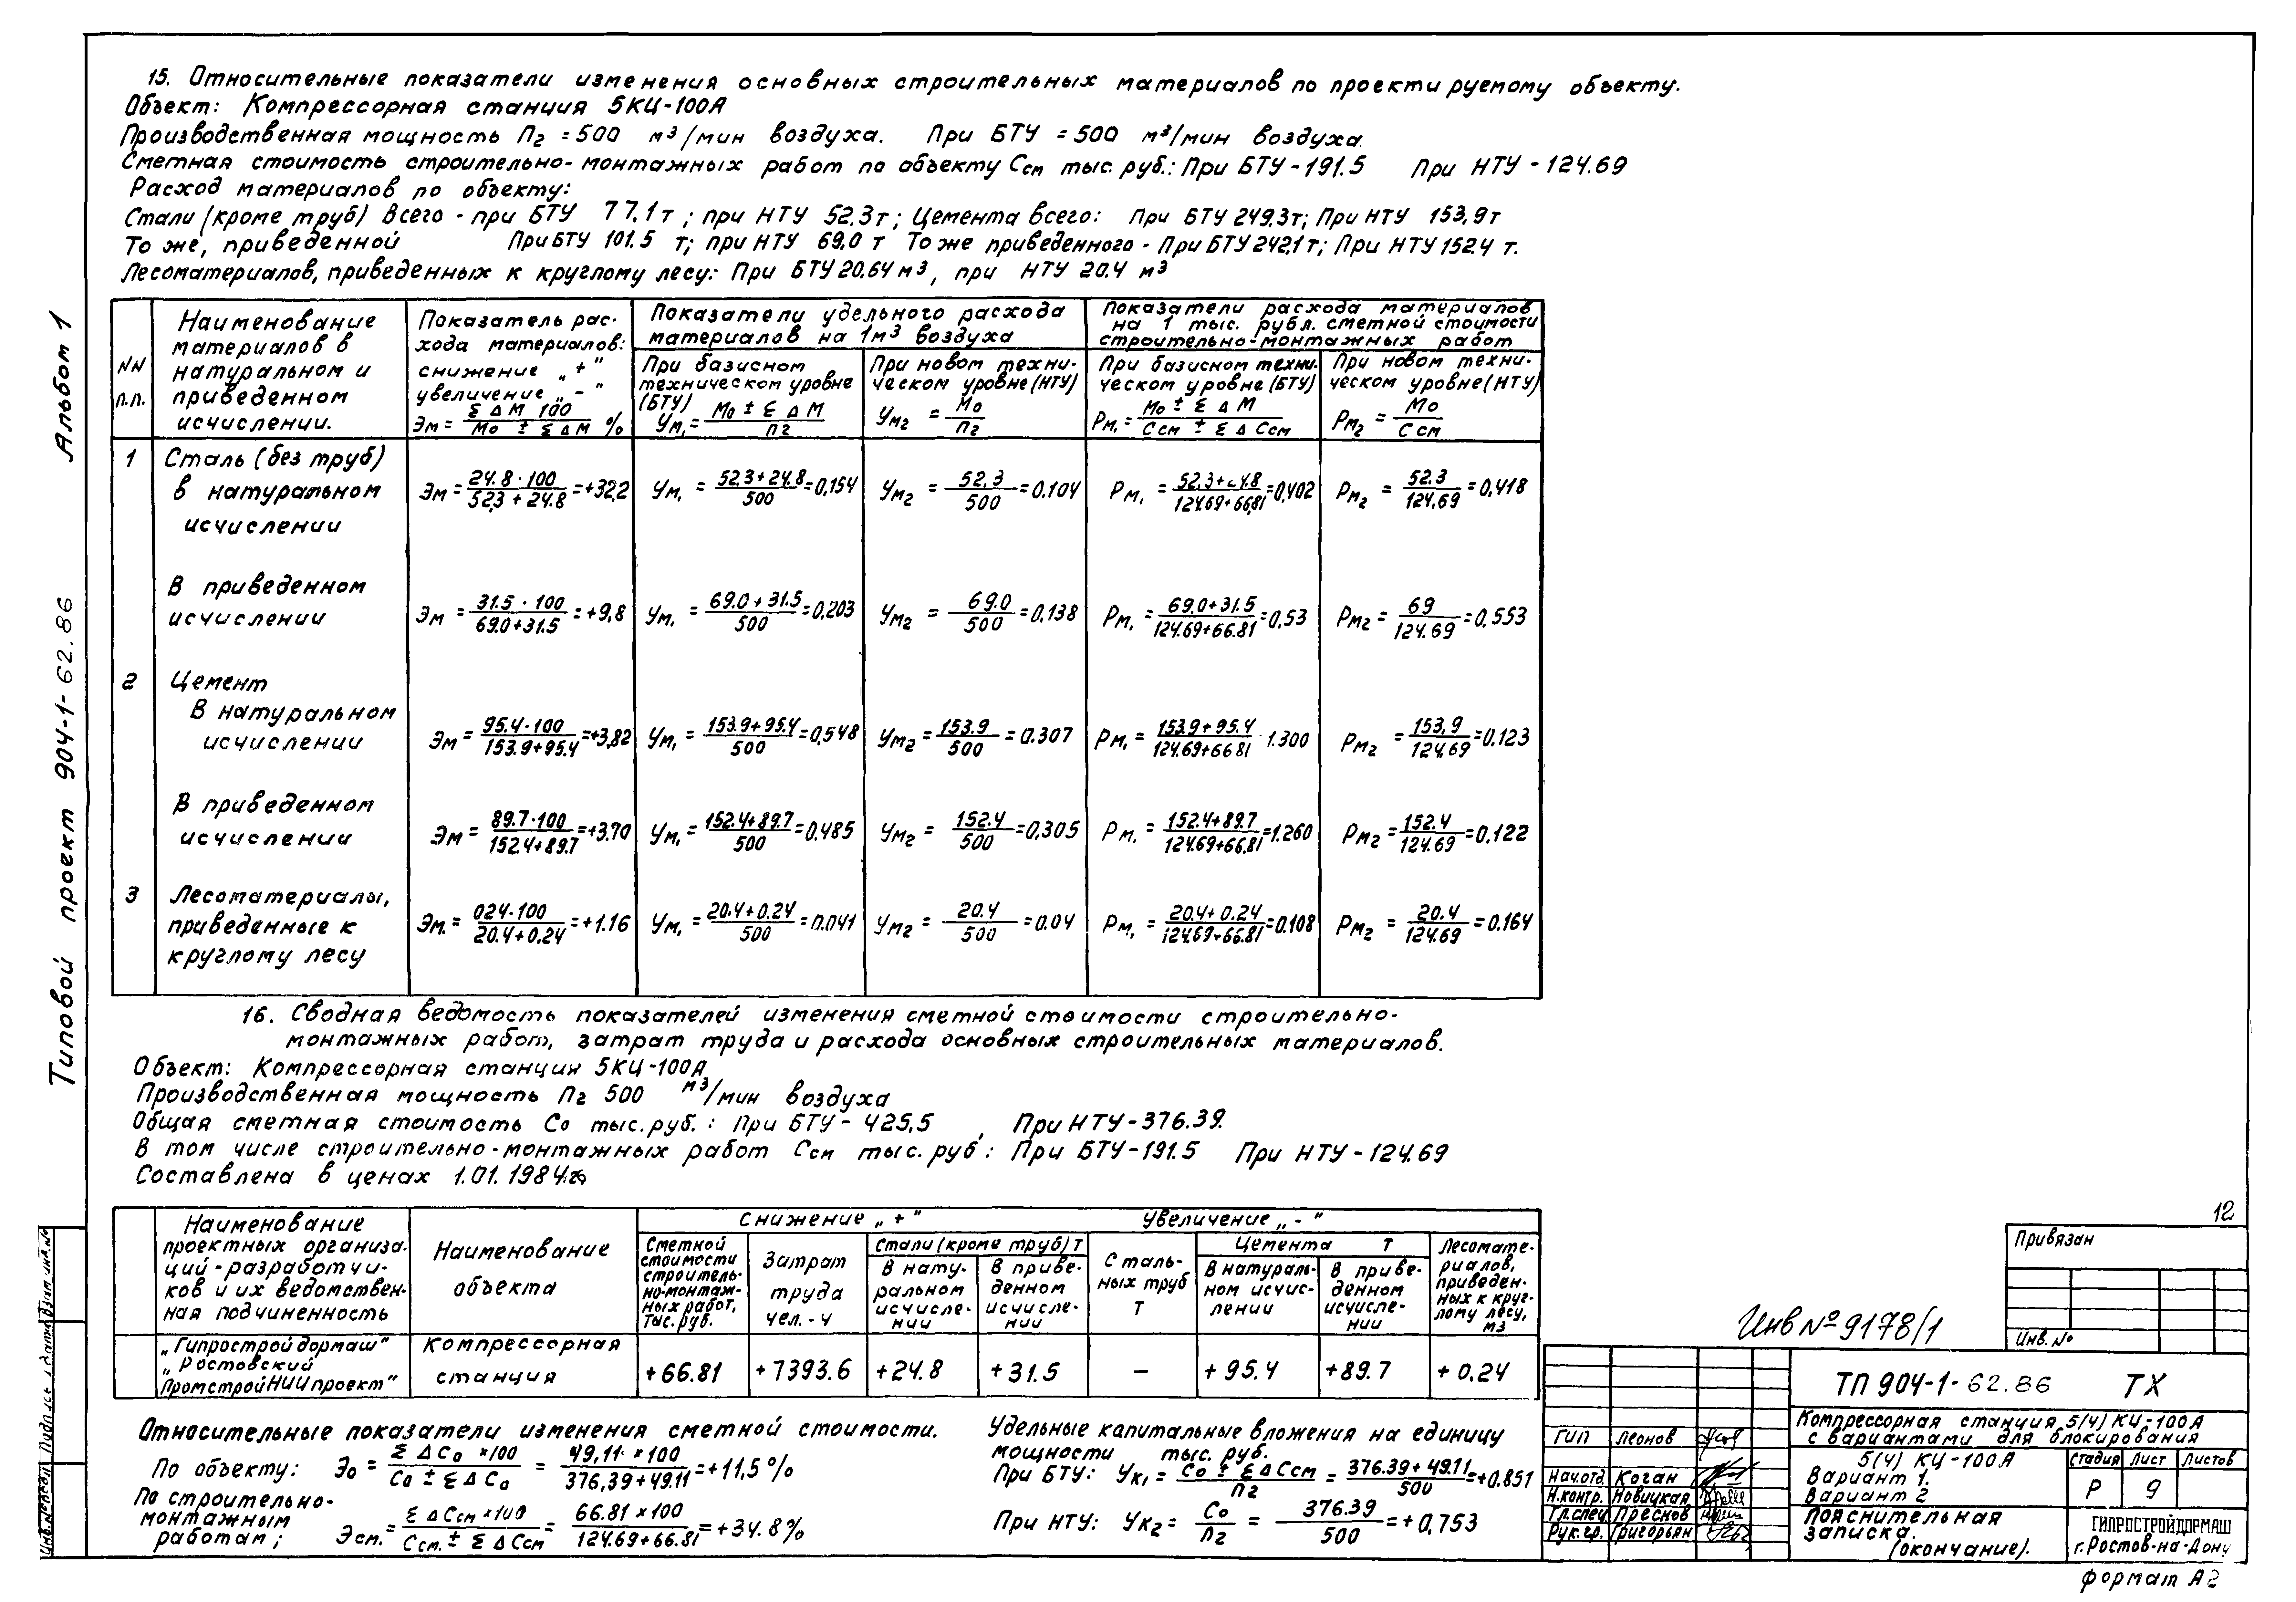 15. Относительные показатели изменения основных строительных материалов по проектируемому объекту.
Объект: Компрессорная станция 5КЦ-100А
Производственная мощность Пг = 500 м³/мин воздуха. При БТУ = 500 м³/мин воздуха.
Сметная стоимость строительно-монтажных работ по объекту Ссм тыс. руб.: При БТУ - 191.5 При НТУ - 124.69
Расход материалов по объекту:
Стали (кроме труб) Всего - при БТУ 77,1т; при НТУ 52.3т; Цемента всего: При БТУ 249,3т; При НТУ 153,9т
То же, приведенной При БТУ 101.5 т; при НТУ 69.0 т То же приведенного - При БТУ 242,1т; При НТУ 152.4 т.
Лесоматериалов, приведенных к круглому лесу: При БТУ 20,64 м³, при НТУ 20.4 м³
NN п.п.
Наименование материалов в натуральном и приведенном исчислении.
Показатель расхода материалов: снижение „+" увеличение „-"
Эм = Σ Δ М 100 / Мо ± Σ Δ М %
Показатели удельного расхода материалов на 1м³ воздуха
При базисном техническом уровне (БТУ)
Ум₁ = Мо ± Σ Δ М / Пг
При новом техническом уровне (НТУ)
Ум₂ = Мо / Пг
Показатели расхода материалов на 1 тыс. рубл. сметной стоимости строительно-монтажных работ
При базисном техническом уровне (БТУ)
Рм₁ = Мо ± Σ Δ М / Ссм ± Σ Δ Ссм
При новом техническом уровне (НТУ)
Рм₂ = Мо / Ссм
1 Сталь (без труб) в натуральном исчислении
Эм = 24.8 · 100 / 52,3 + 24.8 = +32,2
Ум₁ = 52.3+24.8 / 500 = 0,154
Ум₂ = 52,3 / 500 = 0.104
Рм₁ = 52.3+24.8 / 124.69+66,81 = 0,402
Рм₂ = 52.3 / 124,69 = 0,418
В приведенном исчислении
Эм = 31.5 · 100 / 69.0+31.5 = +9,8
Ум₁ = 69.0 + 31.5 / 500 = 0,203
Ум₂ = 69.0 / 500 = 0.138
Рм₁ = 69.0+31.5 / 124.69+66.81 = 0,53
Рм₂ = 69 / 124.69 = 0,553
2 Цемент
В натуральном исчислении
Эм = 95.4 · 100 / 153.9+95.4 = +3,82
Ум₁ = 153.9+95.4 / 500 = 0,548
Ум₂ = 153.9 / 500 = 0.307
Рм₁ = 153.9+95.4 / 124.69+66 81 · 1.300
Рм₂ = 153,9 / 124.69 = 0.123
В приведенном исчислении
Эм = 89.7·100 / 152.4+89.7 = +3.70
Ум₁ = 152.4+89.7 / 500 = 0.485
Ум₂ = 152.4 / 500 = 0,305
Рм₁ = 152.4+89.7 / 124.69+66.81 = 1.260
Рм₂ = 152.4 / 124.69 = 0,122
3 Лесоматериалы, приведенные к круглому лесу
Эм. = 024·100 / 20.4+0.24 = +1.16
Ум₁ = 20.4+0.24 / 500 = 0.041
Ум₂ = 20.4 / 500 = 0.04
Рм₁ = 20.4+ 0.24 / 124.69+66.81 = 0.108
Рм₂ = 20.4 / 124.69 = 0.164
16. Сводная ведомость показателей изменения сметной стоимости строительно-
монтажных работ, затрат труда и расхода основных строительных материалов.
Объект: Компрессорная станция 5КЦ-100А
Производственная мощность Пг 500 м³/мин воздуха
Общая сметная стоимость Со тыс. руб.: При БТУ - 425,5 , При НТУ - 376.39.
В том числе строительно-монтажных работ Ссм тыс. руб: При БТУ - 191.5 При НТУ - 124.69
Составлена в ценах 1.01.1984г.
Наименование проектных организаций-разработчиков и их ведомственная подчиненность
Наименование объекта
Снижение „+" Увеличение „-"
Сметной стоимости строительно-монтажных работ, тыс. руб.
Затрат труда чел.-ч
Стали (кроме труб) Т
В натуральном исчислении
В приведенном исчислении
Стальных труб Т
Цемента Т
В натуральном исчислении
В приведенном исчислении
Лесоматериалов, приведенных к круглому лесу, м3
„Гипростройдормаш" „Ростовский ПромстройНИИпроект"
Компрессорная станция
+66.81 +7393.6 +24.8 +31.5 — +95.4 +89.7 +0.24
Относительные показатели изменения сметной стоимости.
По объекту: Эо = Σ Δ Со ×100 / Со ± Σ Δ Со = 49,11 × 100 / 376,39 + 49.11 = +11,5 %
По строительно-монтажным работам; Эсм. = Σ Δ Ссм ×100 / Ссм. ± Σ Δ Ссм = 66.81 × 100 / 124.69+66.81 = +34.8%
Удельные капитальные вложения на единицу мощности тыс. руб.
При БТУ: Ук₁ = Со ± Σ Δ Ссм / Пг = 376.39 + 49.11 / 500 = +0.851
При НТУ: Ук₂ = Со / Пг = 376.39 / 500 = +0,753
Типовой проект 904-1-62.86 Альбом 1
Инв.№подл Подпись и дата Взам.инв.№
12
Привязан
Инв. №
Инв № 9178/1
ТП 904-1-62.86 ТХ
Компрессорная станция 5(4) КЦ-100А
с вариантами для блокирования
ГИП Леонов
Нач.отд. Коган
Н.контр. Новицкая
Гл.спец Преснов
Рук.гр. Григорьян
5(4) КЦ-100А
Вариант 1.
Вариант 2
Стадия Лист Листов
Р 9
Пояснительная
записка.
(окончание).
ГИПРОСТРОЙДОРМАШ
г. Ростов-на-Дону
формат А2